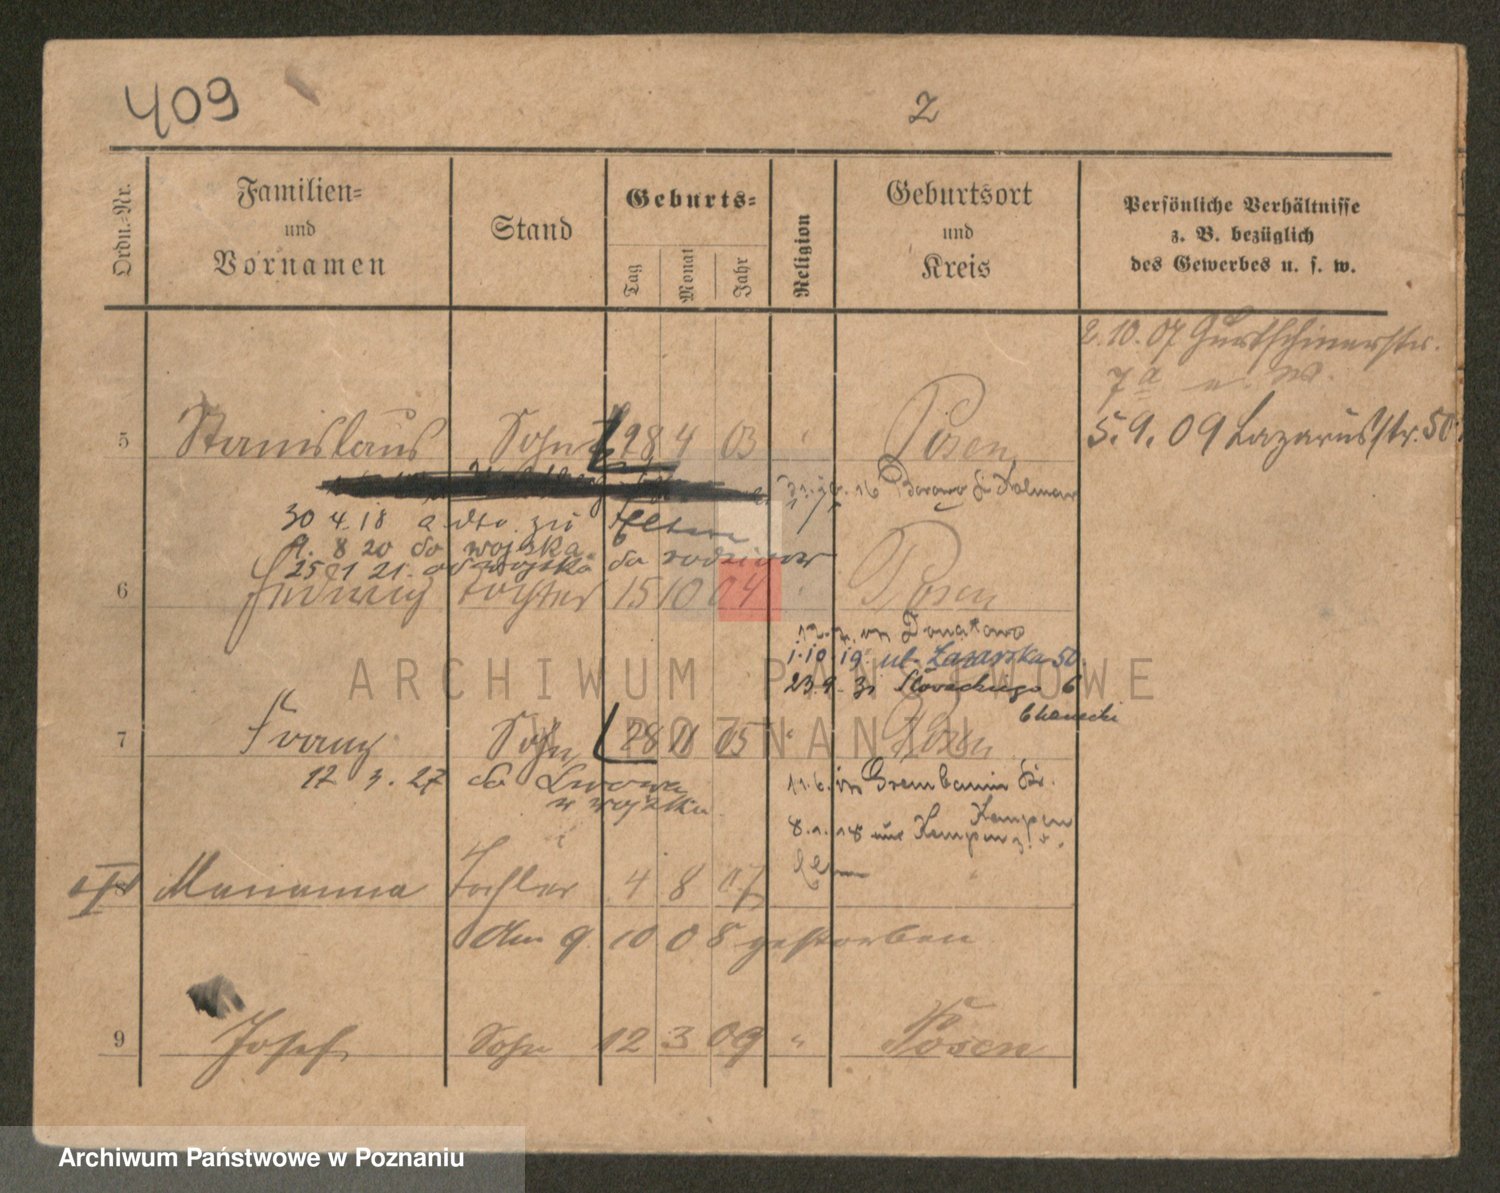 409
2
Ordn.-Nr.
Familien-
und
Vornamen
Stand
Geburts-
Tag
Monat
Jahr
Religion
Geburtsort
und
Kreis
Persönliche Verhältnisse
z. B. bezüglich
des Gewerbes u. s. w.
2.10.07 Gurtschinerstr.
7a
5 Stanislaus Sohn 28 4 03 " Posen
5.9.09 Lazarusstr. 50
30 4.18 zu Eltern
8 20 do wojska
25 1 21 od wojska do rodziców
6 Hedwig Tochter 15 10 04 " Posen
in Donatowo
1.10 19 ul. Łazarska 50
23.9. 31 Słowackiego 6
7 Franz Sohn 28 11 05 " Posen
17 3. 27 do Lwowa
w wojsku
11.6. in Grembanin Kr.
Kempen
8.1.18 aus Kempen z.
Eltern
8 Marianna Tochter 4 8 07
den 9. 10 08 gestorben
9 Josef Sohn 12 3 09 " Posen
ARCHIWUM PAŃSTWOWE
W POZNANIU
Archiwum Państwowe w Poznaniu